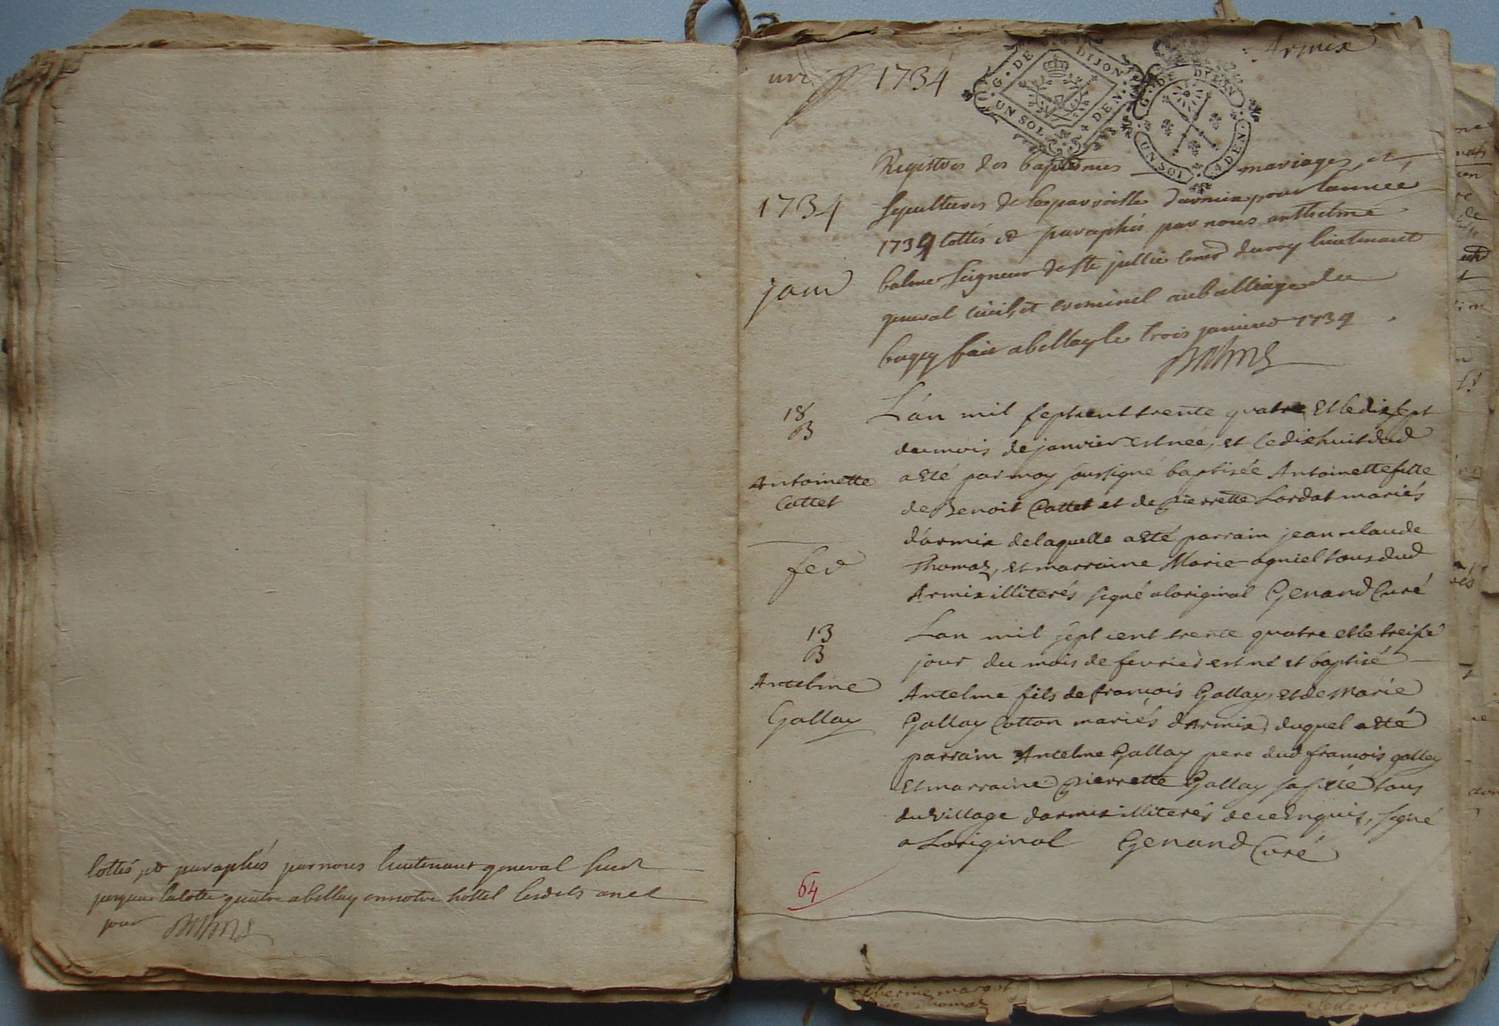 lottés et paraphés par nous lieutenant general susd
jusques la cotte quatre a bellay en notre hottel lesdits an et
jour
Armix
une 1734
G. DE DIJON
UN SOL 4 DEN.
G. DE DIJON
UN SOL 4 DEN.
Registres des baptesmes mariages et
1734
sepultures de la parroisse darmix pour lannée
1734 cottés et paraphés par nous anthelme
balme Seigneur de Ste jullie du roy lieutenant
janv
general civil et criminel au balliage du
bugey fait a bellay le trois janvier 1734
balme
18
B
Antoinette
Cottet
L'an mil sept cent trente quatre et le dix sept
du mois de janvier est née, et le dix huit dud
a été par moy soussigné baptisée Antoinette fille
de Benoit Cottet et de Pierrette Lordat mariés
d'armix de laquelle a été parrain jean claude
fev
Thomas, et marraine Marie agniel tous dud
Armix illiterés signé aloriginal Genand Curé
13
B
Antelme
Gallay
Lan mil sept cent trente quatre et le treise
jour du mois de fevrier est né et baptisé
Antelme fils de françois Gallay, et de Marie
Gallay Cotton mariés d'Armix, duquel a été
parrain Antelme Gallay pere dud françois gallay
et marraine Pierrette Gallay sa tous
du village darmix illiterés de ce Enquis, signé
a Loriginal Genand Curé
64